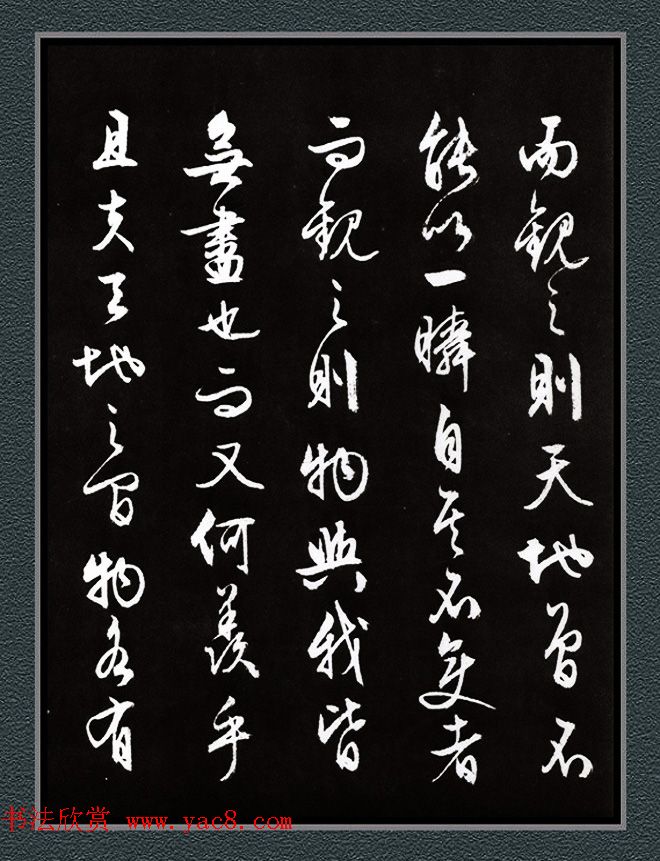 而觀之則天地曾不
能以一瞬自其不變者
而觀之則物與我皆
無盡也而又何羨乎
且夫天地之間物各有
书法欣赏 www.yac8.com